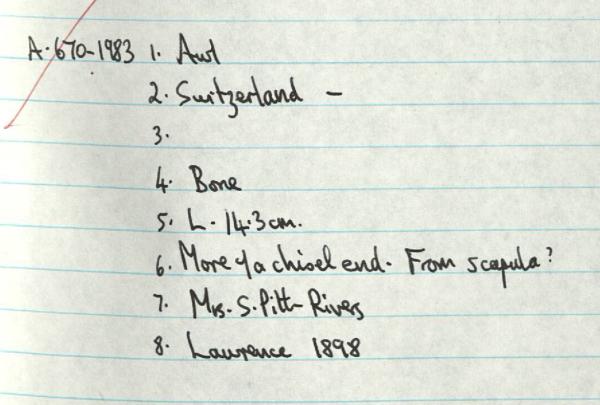 A.670-1983 1. Awl
2. Switzerland –
3.
4. Bone
5. L. 14.3cm.
6. More of a chisel end. From scapula?
7. Mrs. S. Pitt-Rivers
8. Lawrence 1898